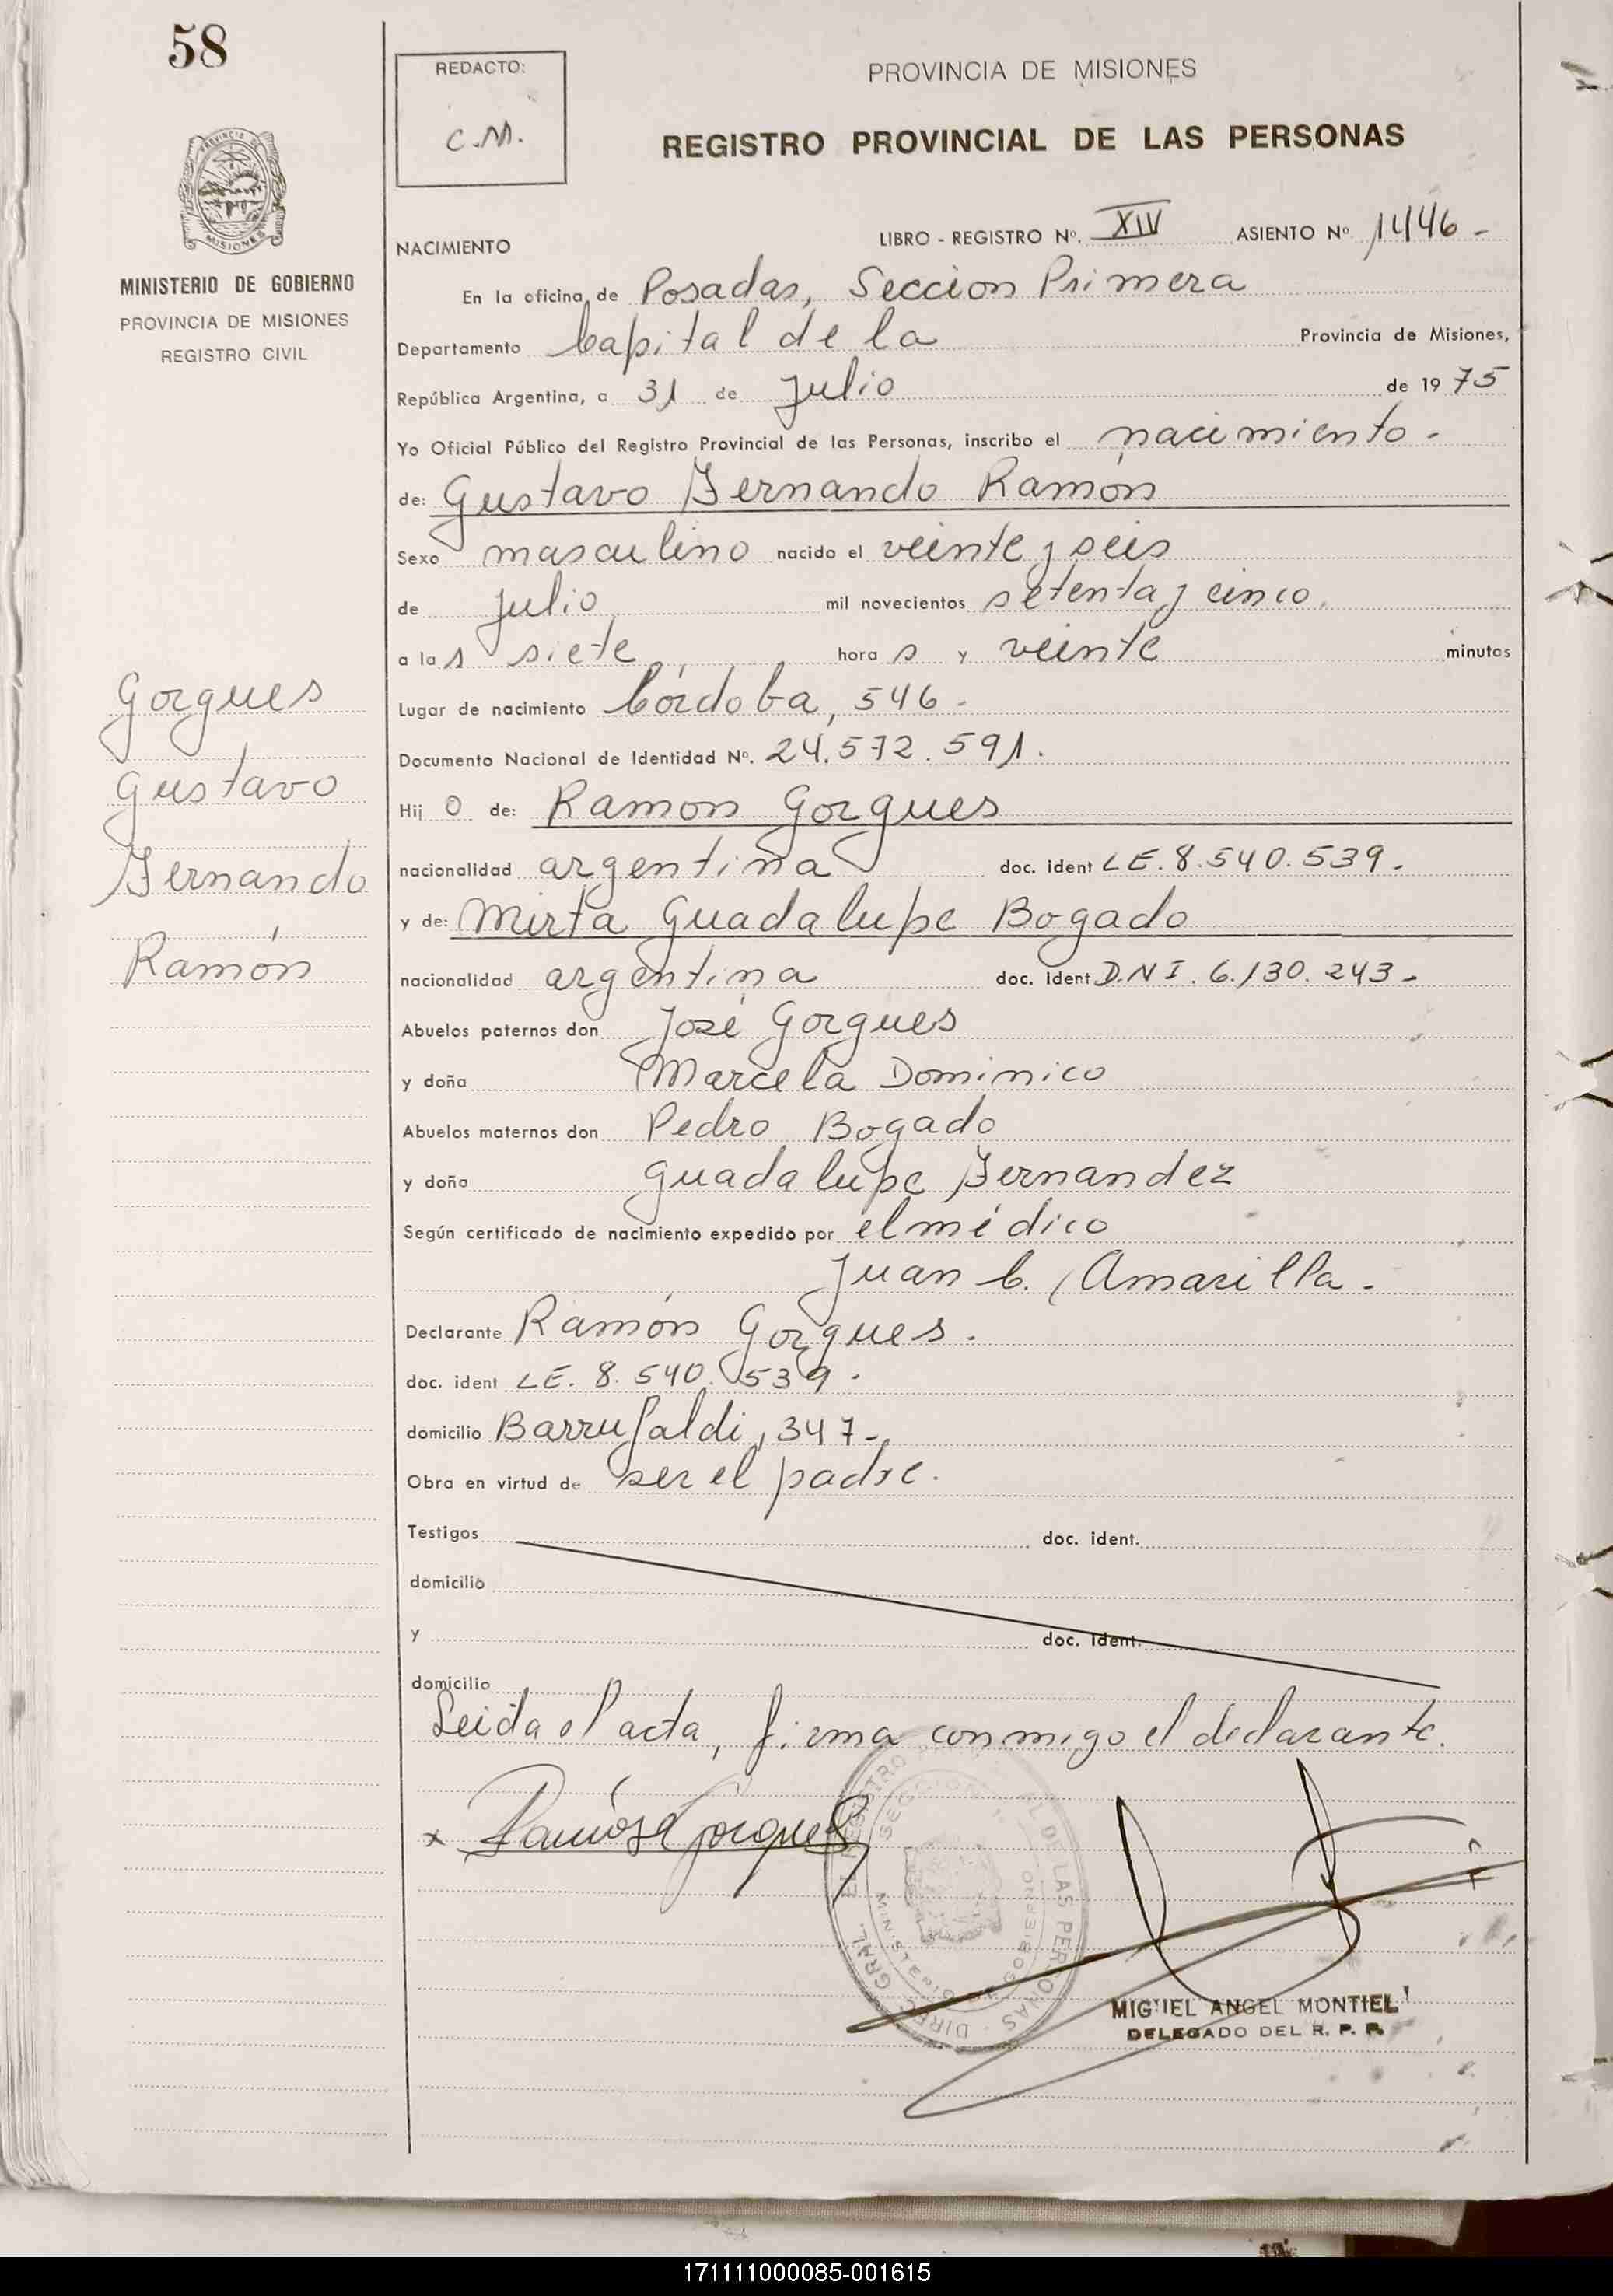 58
REDACTO:
C.M.
PROVINCIA DE MISIONES
REGISTRO PROVINCIAL DE LAS PERSONAS
PROVINCIA DE
MISIONES
MINISTERIO DE GOBIERNO
PROVINCIA DE MISIONES
REGISTRO CIVIL
NACIMIENTO
LIBRO - REGISTRO Nº. XIV ASIENTO Nº 1446 -
En la oficina de Posadas, Seccion Primera
Departamento Capital de la Provincia de Misiones,
República Argentina, a 31 de Julio de 1975
Yo Oficial Público del Registro Provincial de las Personas, inscribo el nacimiento -
de: Gustavo Fernando Ramón
Sexo masculino nacido el veinte y seis
de Julio mil novecientos setenta y cinco.
a las siete horas y veinte minutos
Lugar de nacimiento Córdoba, 546 -
Documento Nacional de Identidad Nº. 24.572.591.
Hijo de: Ramon Gorgues
nacionalidad argentina doc. ident LE. 8.540.539.
y de: Mirta Guadalupe Bogado
nacionalidad argentina doc. ident D.N I. 6.130.243 -
Abuelos paternos don José Gorgues
y doña Marcela Dominico
Abuelos maternos don Pedro Bogado
y doña Guadalupe Fernandez
Según certificado de nacimiento expedido por el médico
Juan C. Amarilla -
Declarante Ramón Gorgues.
doc. ident LE. 8.540.539.
domicilio Barrufaldi, 347-
Obra en virtud de ser el padre.
Testigos doc. ident.
domicilio
y doc. ident.
domicilio
Leida el acta, firma conmigo el declarante.
Gorgues
Gustavo
Fernando
Ramón
x Ramón Gorgues
MIGUEL ANGEL MONTIEL
DELEGADO DEL R. P. P.
171111000085-001615